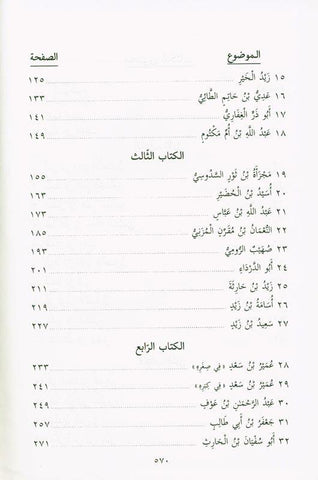 الموضوع الصفحة
١٥ زَيْدُ الْخَيْرِ ١٢٥
١٦ عَدِيُّ بْنُ حَاتِمٍ الطَّائِيُّ ١٣٣
١٧ أَبُو ذَرٍّ الْغِفَارِيُّ ١٤١
١٨ عَبْدُ اللَّهِ بْنُ أُمِّ مَكْتُومٍ ١٤٩
الكتاب الثالث
١٩ مَجْزَأَةُ بْنُ ثَوْرٍ السَّدُوسِيُّ ١٥٥
٢٠ أُسَيْدُ بْنُ الْحُضَيْرِ ١٦٣
٢١ عَبْدُ اللَّهِ بْنُ عَبَّاسٍ ١٧٣
٢٢ النُّعْمَانُ بْنُ مُقَرِّنٍ الْمُزَنِيُّ ١٨٥
٢٣ صُهَيْبٌ الرُّومِيُّ ١٩٣
٢٤ أَبُو الدَّرْدَاءِ ٢٠١
٢٥ زَيْدُ بْنُ حَارِثَةَ ٢١١
٢٦ أُسَامَةُ بْنُ زَيْدٍ ٢١٩
٢٧ سَعِيدُ بْنُ زَيْدٍ ٢٢٧
الكتاب الرابع
٢٨ عُمَيْرُ بْنُ سَعْدٍ «فِي صِغَرِهِ» ٢٣٣
٢٩ عُمَيْرُ بْنُ سَعْدٍ «فِي كِبَرِهِ» ٢٤١
٣٠ عَبْدُ الرَّحْمَنِ بْنُ عَوْفٍ ٢٤٩
٣١ جَعْفَرُ بْنُ أَبِي طَالِبٍ ٢٥٧
٣٢ أَبُو سُفْيَانَ بْنُ الْحَارِثِ ٢٧١
٥٧٠